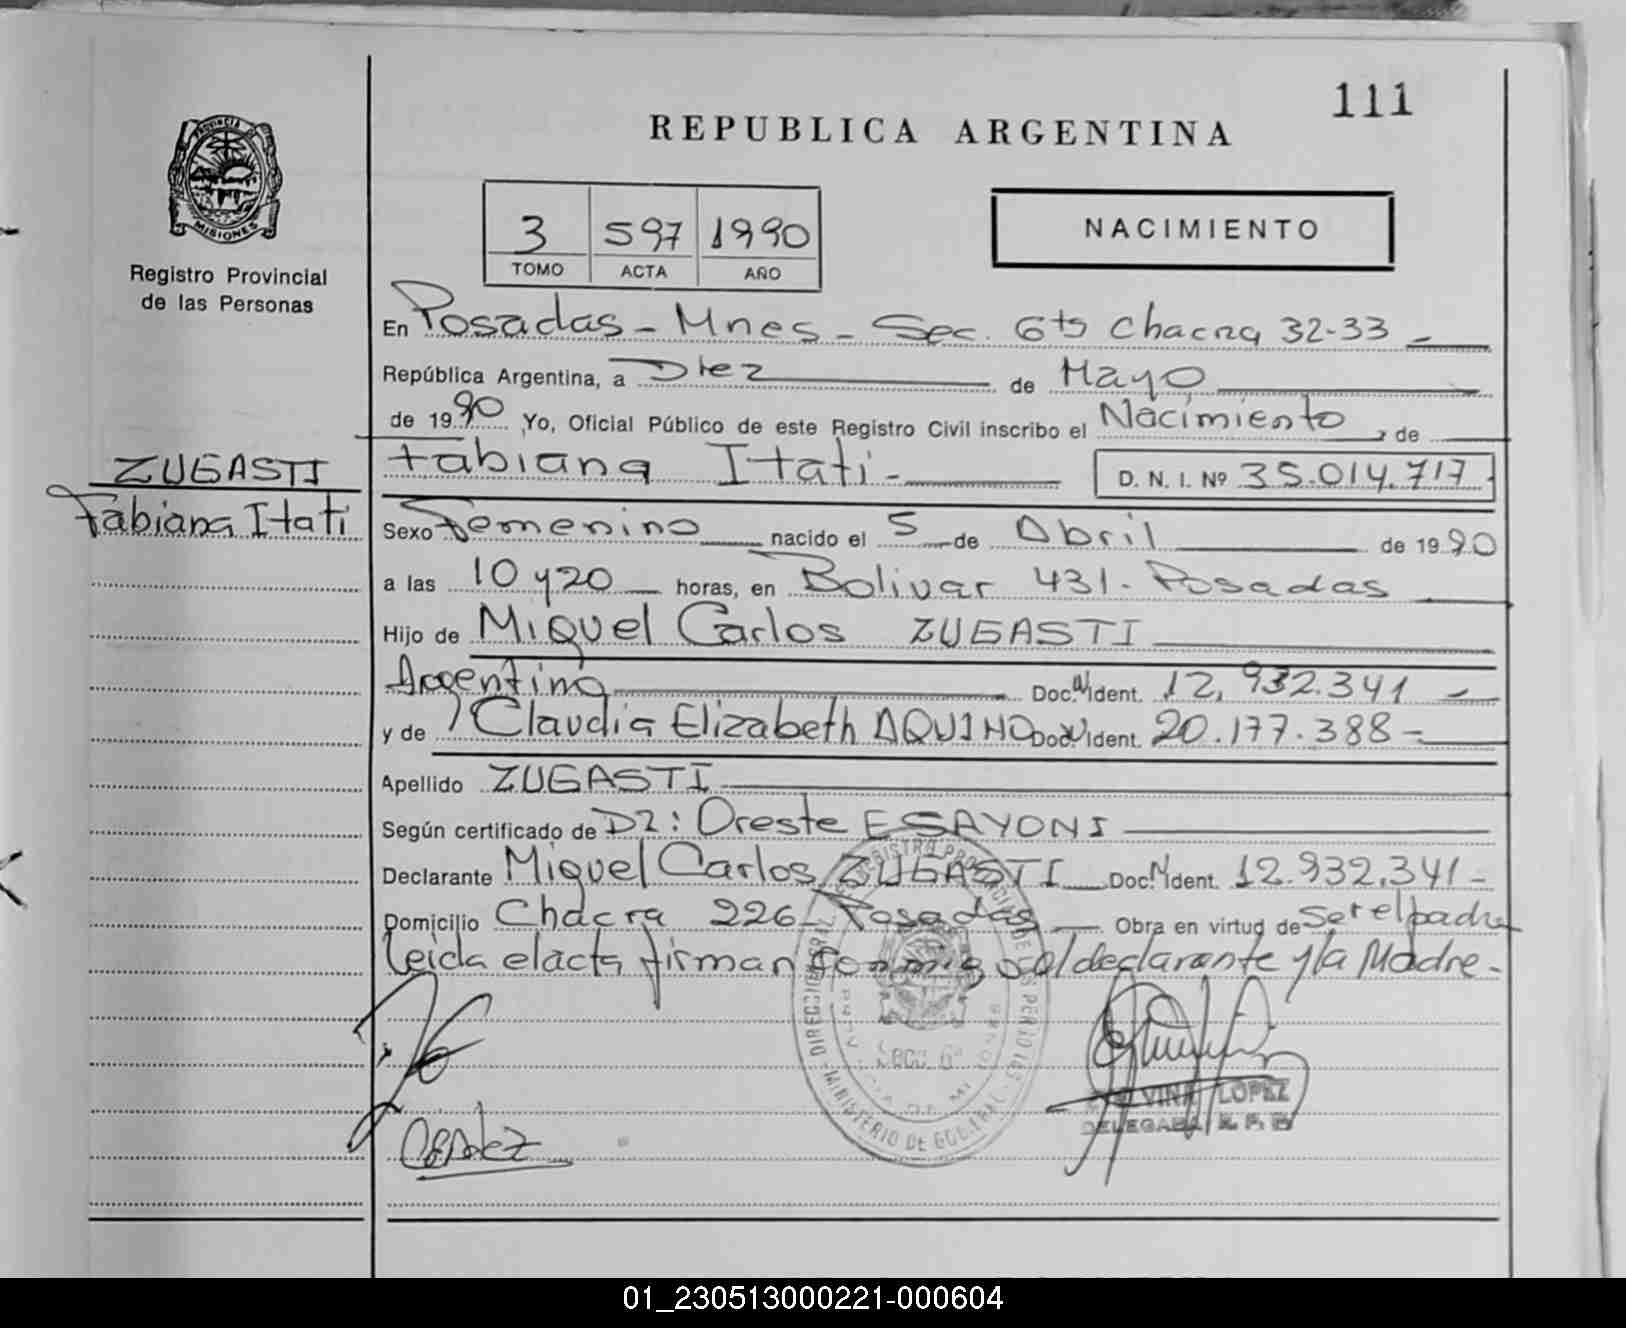 111
REPUBLICA ARGENTINA
PROVINCIA DE
MISIONES
Registro Provincial
de las Personas
3 597 1990
TOMO ACTA AÑO
NACIMIENTO
En Posadas - Mnes - Sec. 6ta Chacra 32-33
República Argentina, a Diez de Mayo
de 1990 Yo, Oficial Público de este Registro Civil inscribo el Nacimiento, de
ZUGASTI
Fabiana Itati
Fabiana Itati - D. N. I. Nº 35.014.717
Sexo Femenino nacido el 5 de Abril de 1990
a las 10 y 20 horas, en Bolivar 431 - Posadas
Hijo de Miguel Carlos ZUGASTI
Argentino Doc. N Ident. 12,932.341
y de Claudia Elizabeth AQUINO Doc. N Ident. 20.177.388 -
Apellido ZUGASTI
Según certificado de D2: Oreste ESAYONI
Declarante Miguel Carlos ZUGASTI Doc. N Ident. 12.932.341 -
Domicilio Chacra 226 Posadas Obra en virtud de ser el padre
leida el acta firman conmigo el declarante y la Madre -
LOPEZ
DELEGADA R. P. P.
01_230513000221-000604